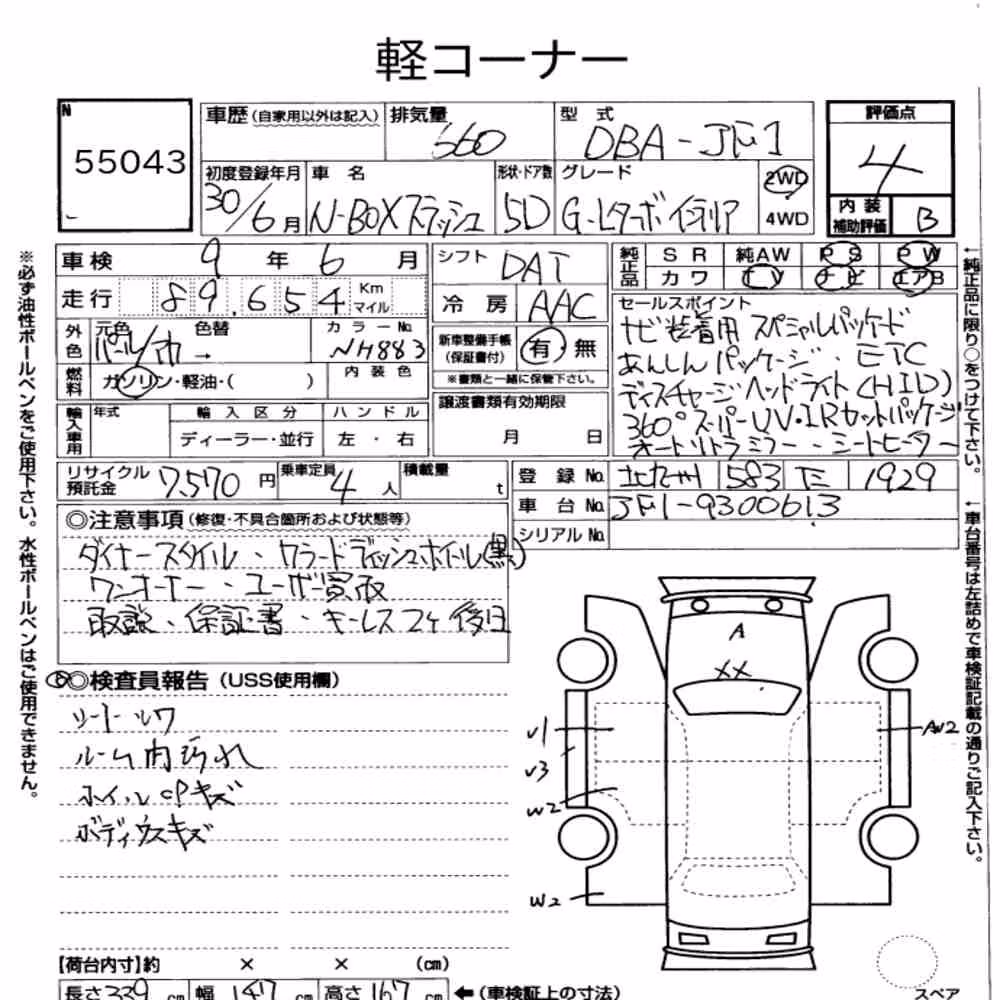 軽コーナー
N
55043
車歴 (自家用以外は記入)
排気量
660
型式
DBA-JF1
評価点
4
内装補助評価
B
初度登録年月
30/6月
車名
N-BOXスラッシュ
形状・ドア数
5D
グレード
G-Lターボイタリア
2WD
4WD
車検 9年 6月
走行 89,654 Km マイル
シフト
DAT
冷房
AAC
純正品 SR 純AW PS PW
カワ TV ナビ エアB
外色 元色 色替
パール/カ →
カラーNo.
NH883
内装色
燃料 ガソリン・軽油・( )
新車整備手帳(保証書付) 有 無
※書類と一緒に保管下さい。
セールスポイント
ナビ装着用 スペシャルパッケージ
あんしんパッケージ・ETC
ディスチャージヘッドライト(HID)
360°スーパーUV・IRカットパッケージ
オートリトラミラー・シートヒーター
輸入車用 年式 輸入区分 ハンドル
ディーラー・並行 左・右
譲渡書類有効期限
月 日
リサイクル預託金 7,570円
乗車定員 4人
積載量 t
登録No. 北九州 583 1929
車台No. JF1-9300613
シリアルNo.
◎注意事項 (修復・不具合箇所および状態等)
ダイナースタイル・カラードディッシュホイール(黒)
ワンオーナー・ユーザー買取
取説・保証書・キーレス2ケ後日
◎検査員報告 (USS使用欄)
シートルワ
ルーム内汚れ
ホイルcPキズ
ボディウスキズ
A
XX
V1
V3
W2
W2
AW2
【荷台内寸】約 × × (cm)
長さ339cm 幅147cm 高さ167 ←(車検証上の寸法)
スペア
※必ず油性ボールペンをご使用下さい。水性ボールペンはご使用できません。
←純正品に限り○をつけて下さい。
←車台番号は左詰めで車検証記載の通りご記入下さい。